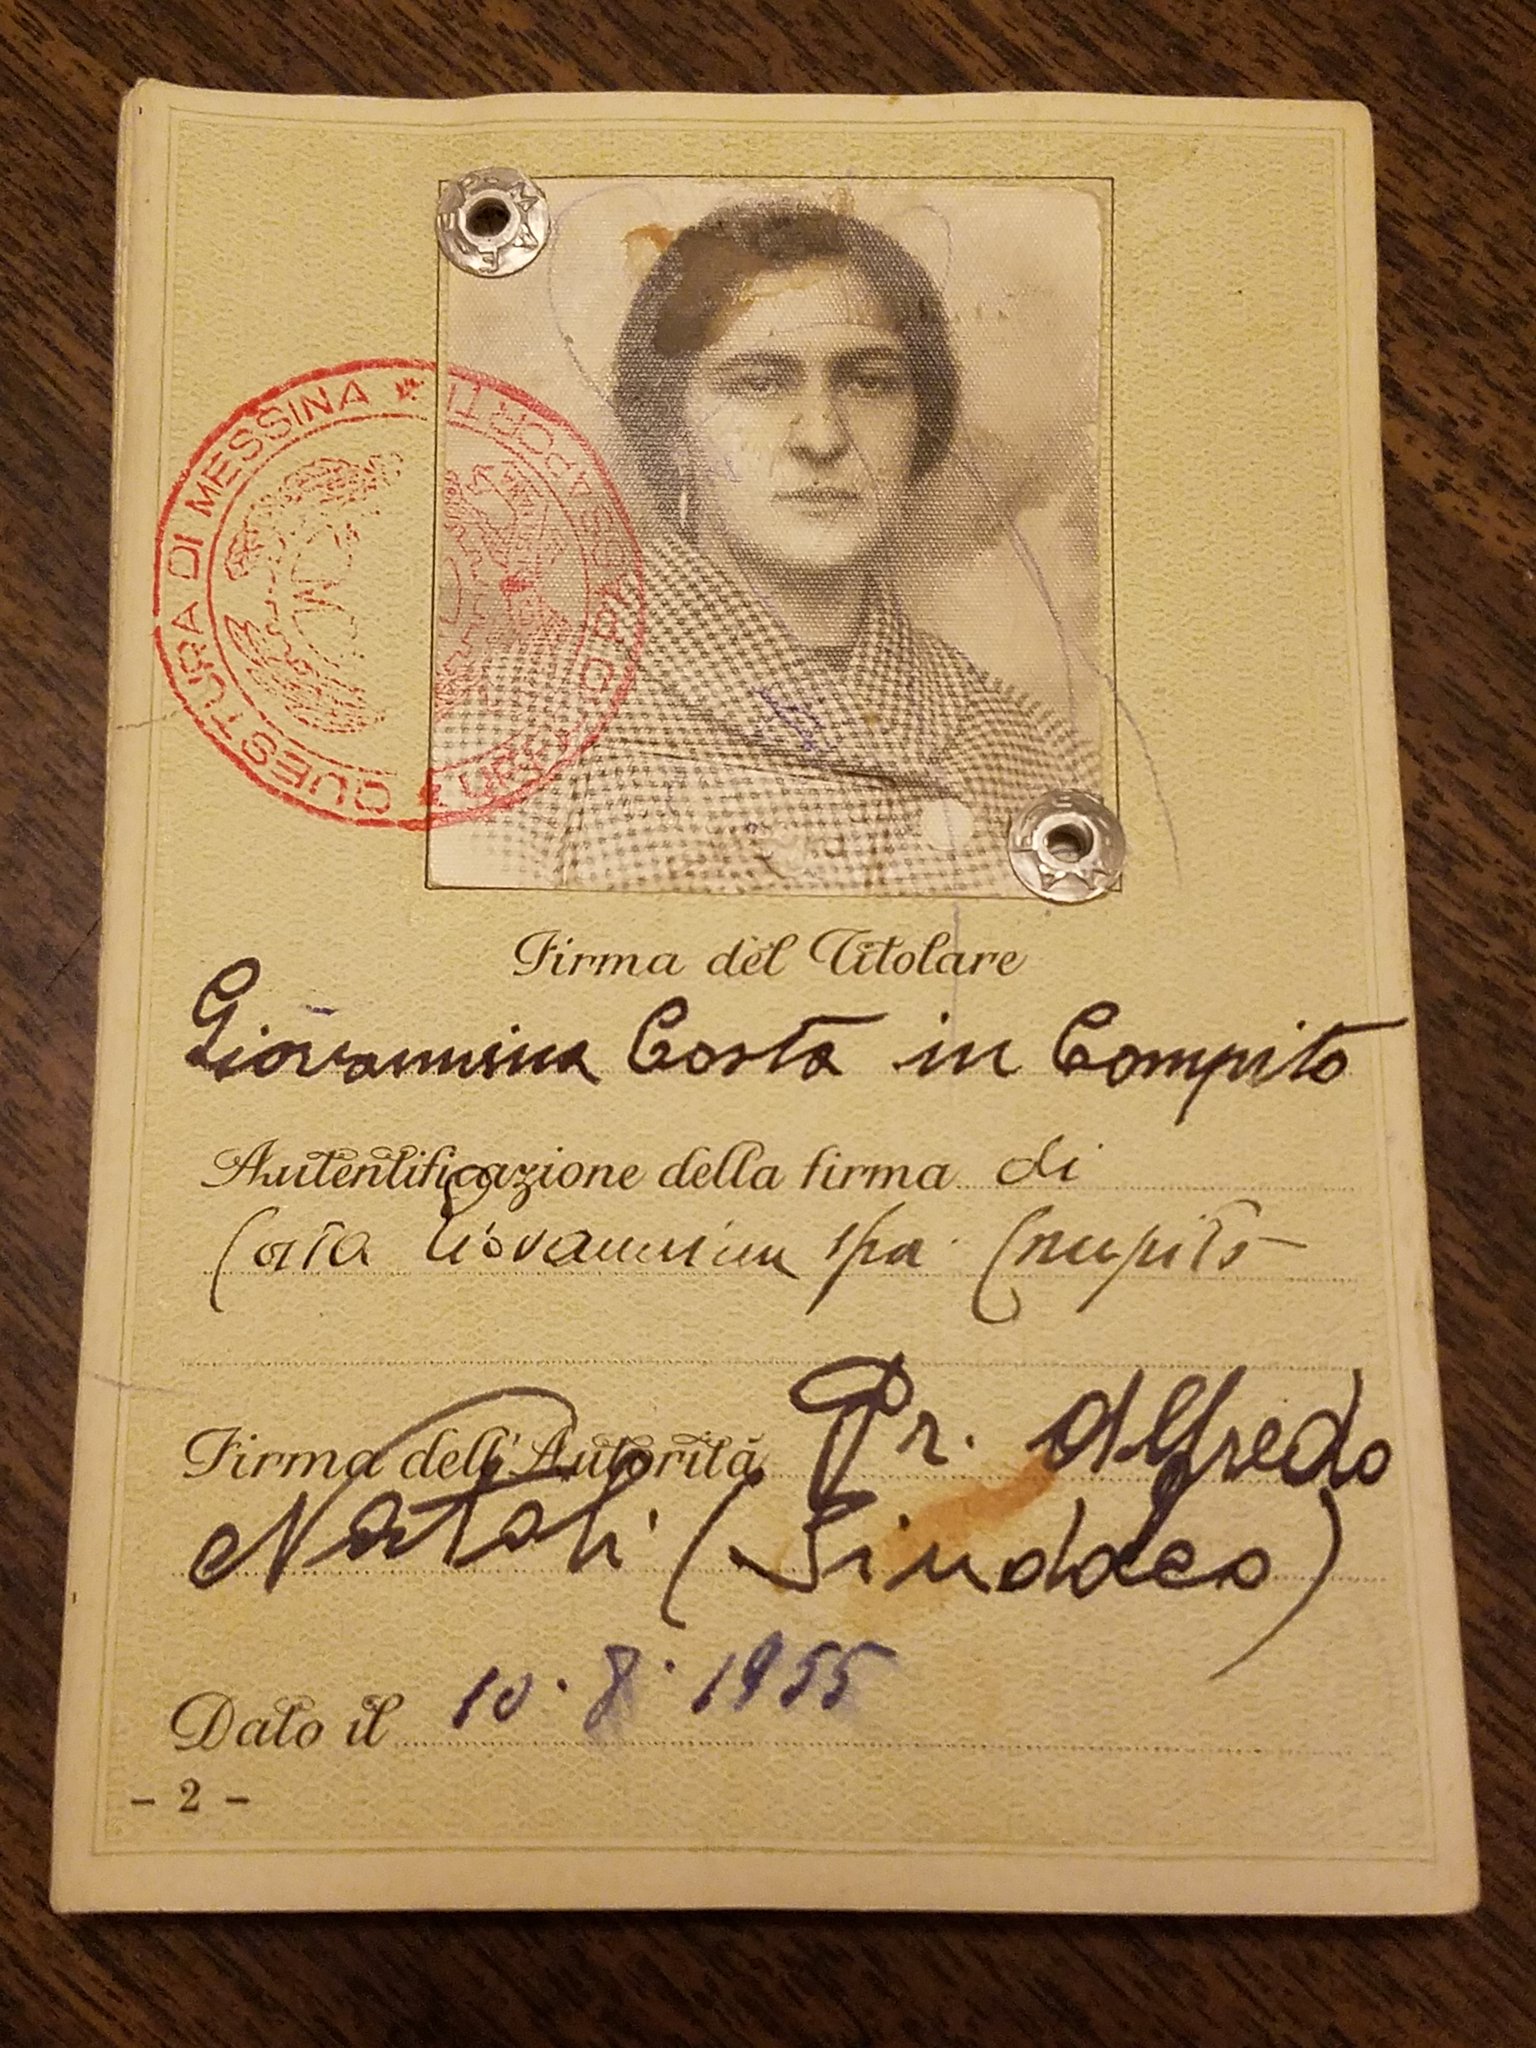 QUESTURA DI MESSINA
Firma del Titolare
Giovannina Costa in Compito
Autentificazione della firma di
Costa Giovannina spa. Compito
Firma dell'Autorità Pr. Alfredo
Natoli (Sindaco)
Dato il 10.8.1955
- 2 -